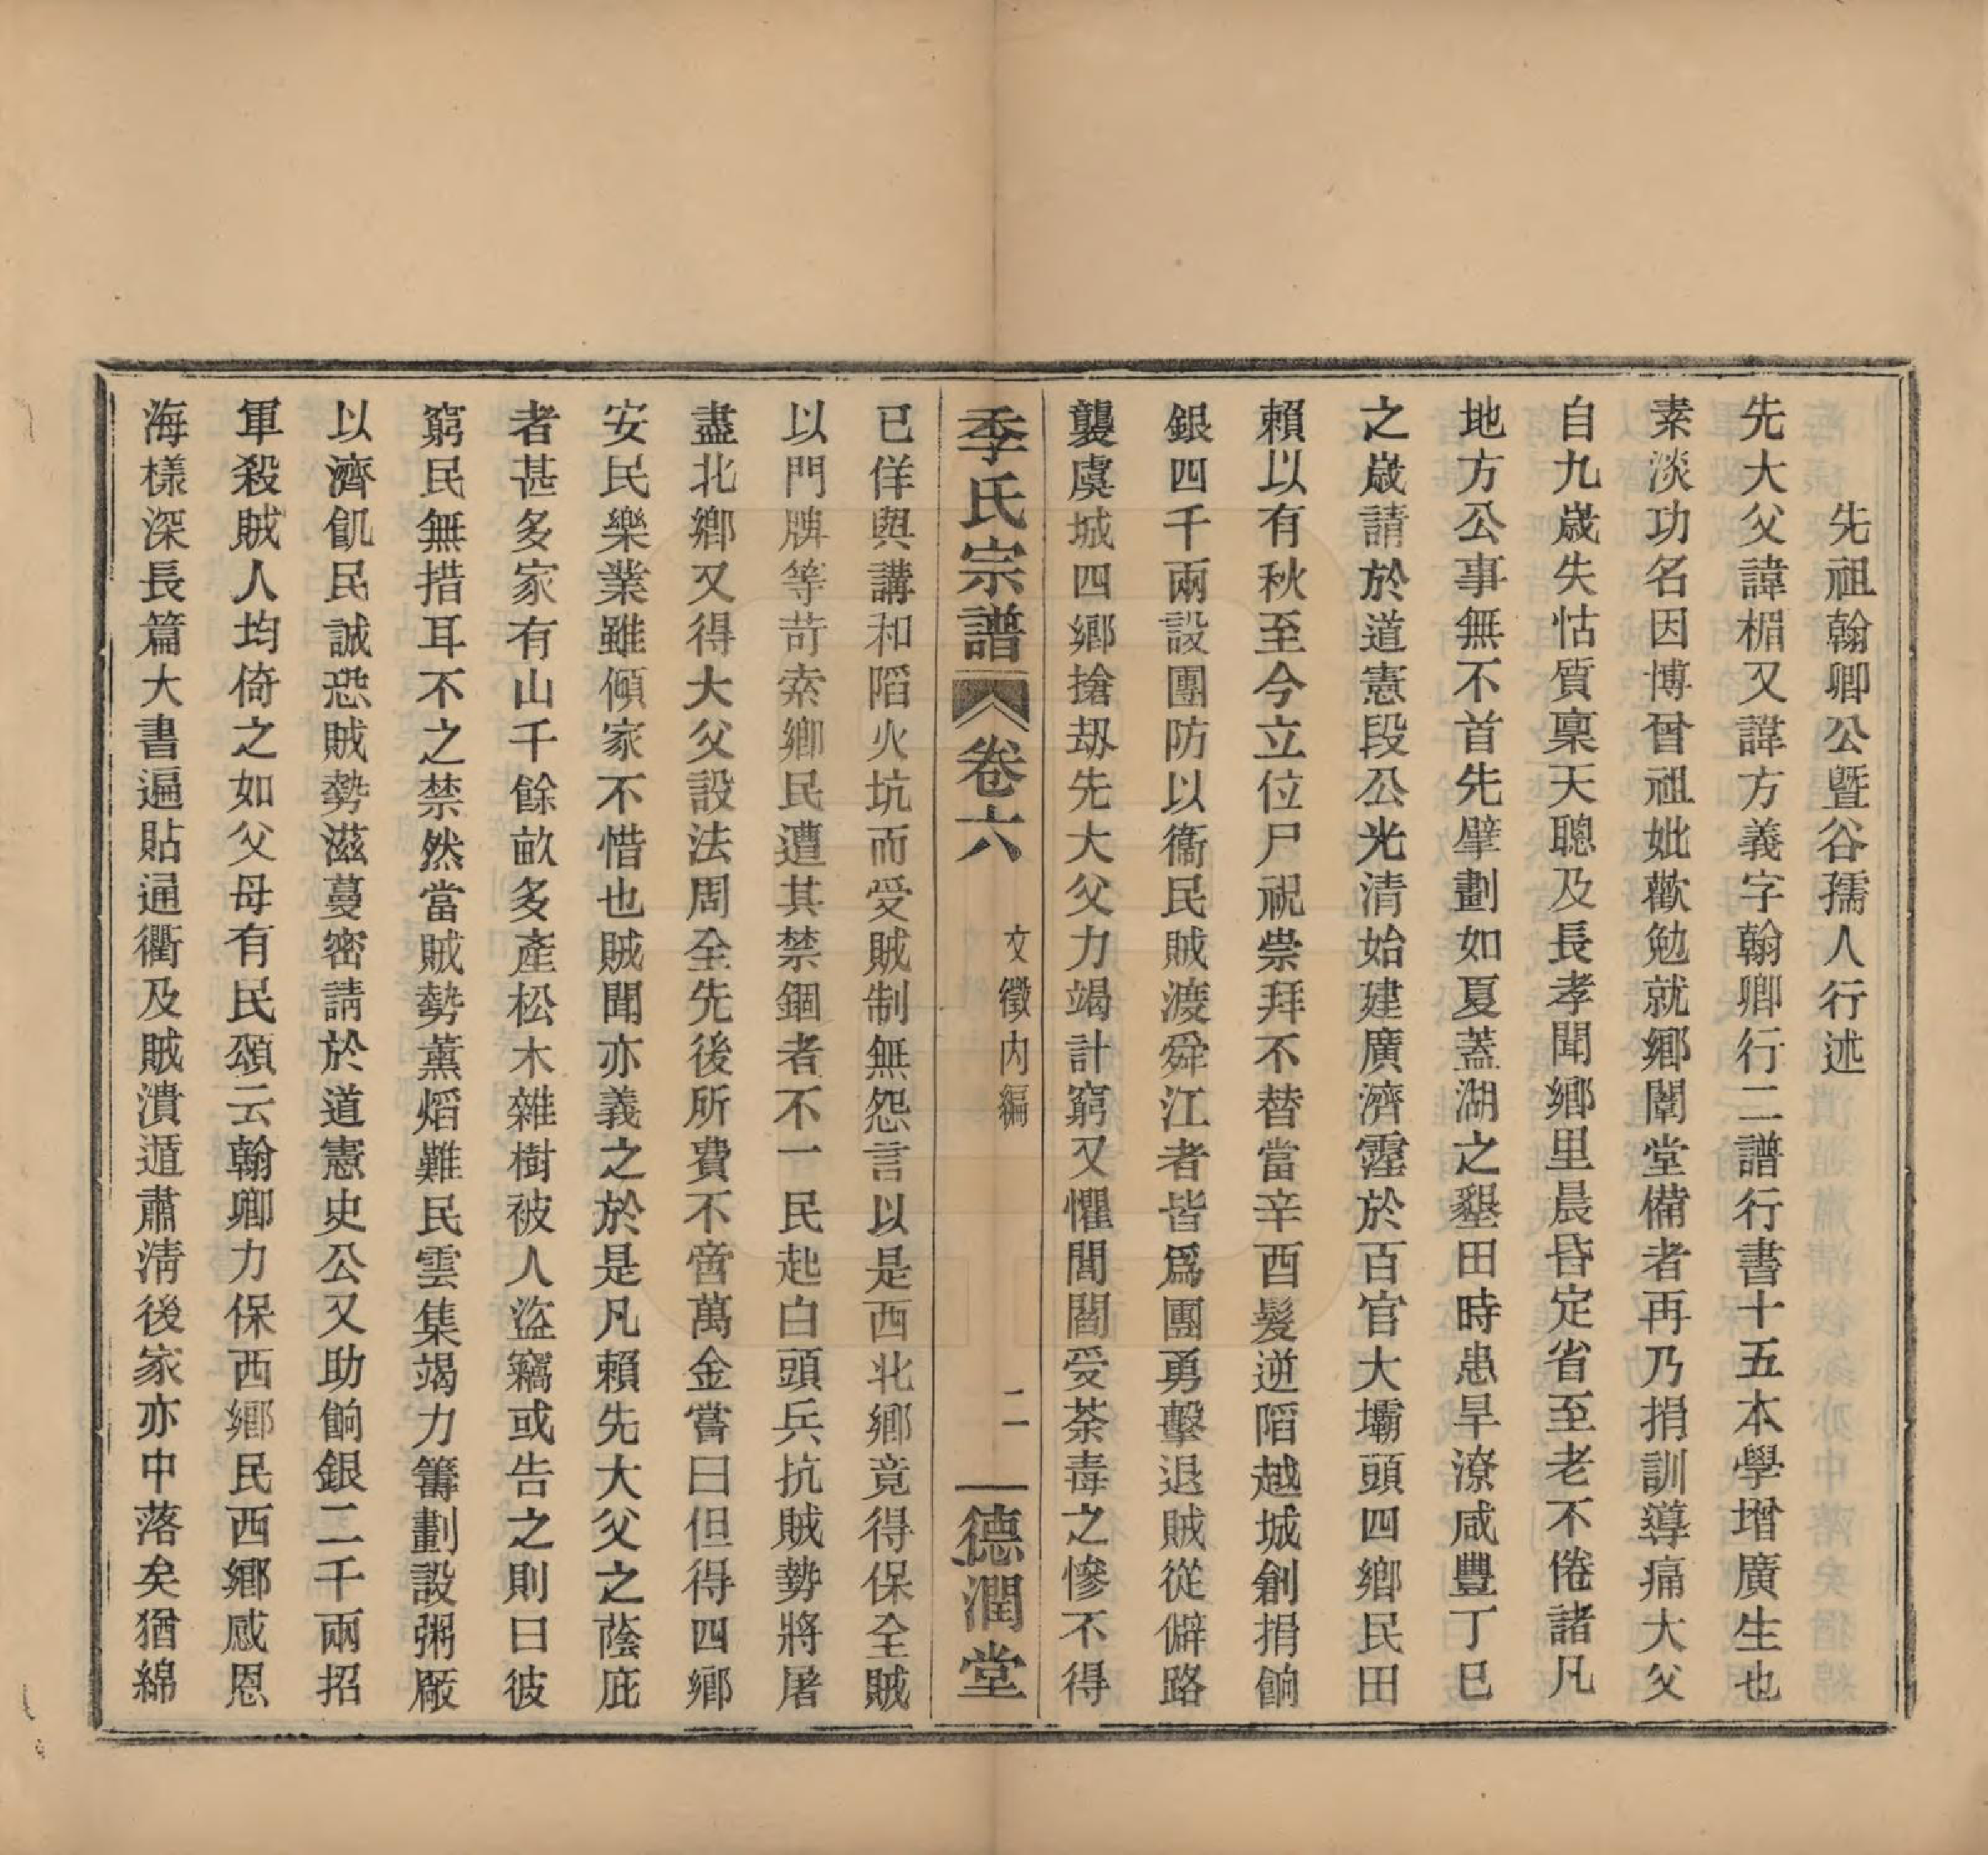 先祖翰卿公暨谷孺人行述
先大父諱楣又諱方義字翰卿行二譜行書十五本學增廣生也
素淡功名因博曾祖妣歡勉就鄉闈堂備者再乃捐訓導痛大父
自九歲失怙質稟天聰及長孝聞鄉里晨昏定省至老不倦諸凡
地方公事無不首先擘劃如夏蓋湖之墾田時患旱潦咸豐丁巳
之歲請於道憲段公光清始建廣濟霪於百官大壩頭四鄉民田
賴以有秋至今立位尸祝崇拜不替當辛酉髮逆陷越城創捐餉
銀四千兩設團防以衞民賊渡舜江者皆爲團勇擊退賊從僻路
襲虞城四鄉搶刼先大父力竭計窮又懼閭閻受荼毒之慘不得
季氏宗譜 卷六 文徵內編 二 德潤堂
已佯與講和陷火坑而受賊制無怨言以是西北鄉竟得保全賊
以門牌等苛索鄉民遭其禁錮者不一民起白頭兵抗賊勢將屠
盡北鄉又得大父設法周全先後所費不啻萬金嘗曰但得四鄉
安民樂業雖傾家不惜也賊聞亦義之於是凡賴先大父之蔭庇
者甚多家有山千餘畝多產松木雜樹被人盜竊或告之則曰彼
窮民無措耳不之禁然當賊勢薰熖難民雲集竭力籌劃設粥厰
以濟飢民誠恐賊勢滋蔓密請於道憲史公又助餉銀二千兩招
軍殺賊人均倚之如父母有民頌云翰卿力保西鄉民西鄉感恩
海樣深長篇大書遍貼通衢及賊潰遁肅淸後家亦中落矣猶綿